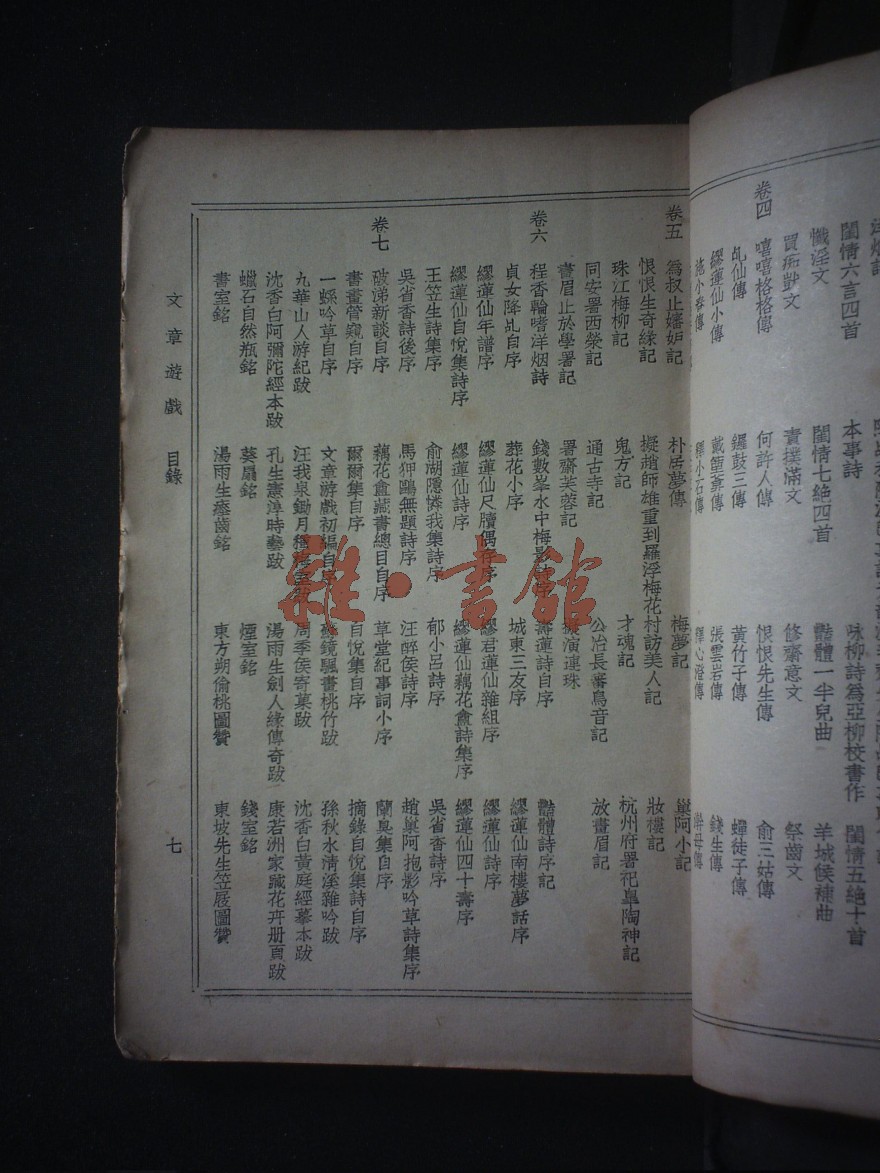 閨情六言四首 本事詩 咏柳詩爲亞柳校書作 閨情五絶十首
懺淫文 閨情七絶四首 豔體一半兒曲 羊城候補曲
責撲滿文 修齋意文 祭齒文
卷四 嘻嘻格格傳 何許人傳 恨恨先生傳 俞三姑傳
乩仙傳 鑼鼓三傳 黃竹子傳 蟬徒子傳
繆蓮仙小傳 張雲岩傳 錢生傳
施小春傳 釋小石傳 釋心澄傳
卷五 爲叔止嬸妒記 朴居夢傳 梅夢記 巢阿小記
恨恨生奇緣記 擬趙師雄重到羅浮梅花村訪美人記 妝樓記
珠江梅柳記 鬼方記 才魂記 杭州府署祀臯陶神記
同安署西檠記 通古寺記 公冶長審鳥音記 放畫眉記
畫眉止於學署記 署齋芙蓉記 演連珠
卷六 程香輪嗜洋烟詩 錢數峯水中梅影 蓮詩自序 豔體詩序記
貞女降乩自序 葬花小序 城東三友序 繆蓮仙南樓夢話序
繆蓮仙年譜序 繆蓮仙尺牘偶存序 繆君蓮仙雜組序 繆蓮仙詩序
繆蓮仙自悅集詩序 繆蓮仙詩序 繆蓮仙藕花龕詩集序 繆蓮仙四十壽序
王笠生詩集序 俞湖隱憐我集詩序 郁小呂詩序 吳省香詩序
吳省香詩後序 馬狎鷗無題詩序 汪醉侯詩序 趙巢阿抱影吟草詩集序
卷七 破涕新談自序 藕花龕藏書總目自序 草堂紀事詞小序 蘭臭集自序
書畫管窺自序 爾爾集自序 自悅集自序 摘錄自悅集詩自序
一螺吟草自序 文章游戲初編自序 蘇鏡飄畫桃竹跋 孫秋水清溪雜吟跋
九華山人游紀跋 汪我泉鋤月種梅 周季侯寄菓跋 沈香白黃庭經摹本跋
沈香白阿彌陀經本跋 孔生憲淳時藝跋 湯雨生劍人緣傳奇跋 康若洲家藏花卉册頁跋
蠟石自然瓶銘 葵扇銘 煙室銘 錢室銘
書室銘 湯雨生瘞齒銘 東方朔偷桃圖贊 東坡先生笠屐圖贊
文章遊戲 目錄 七
雜·書館